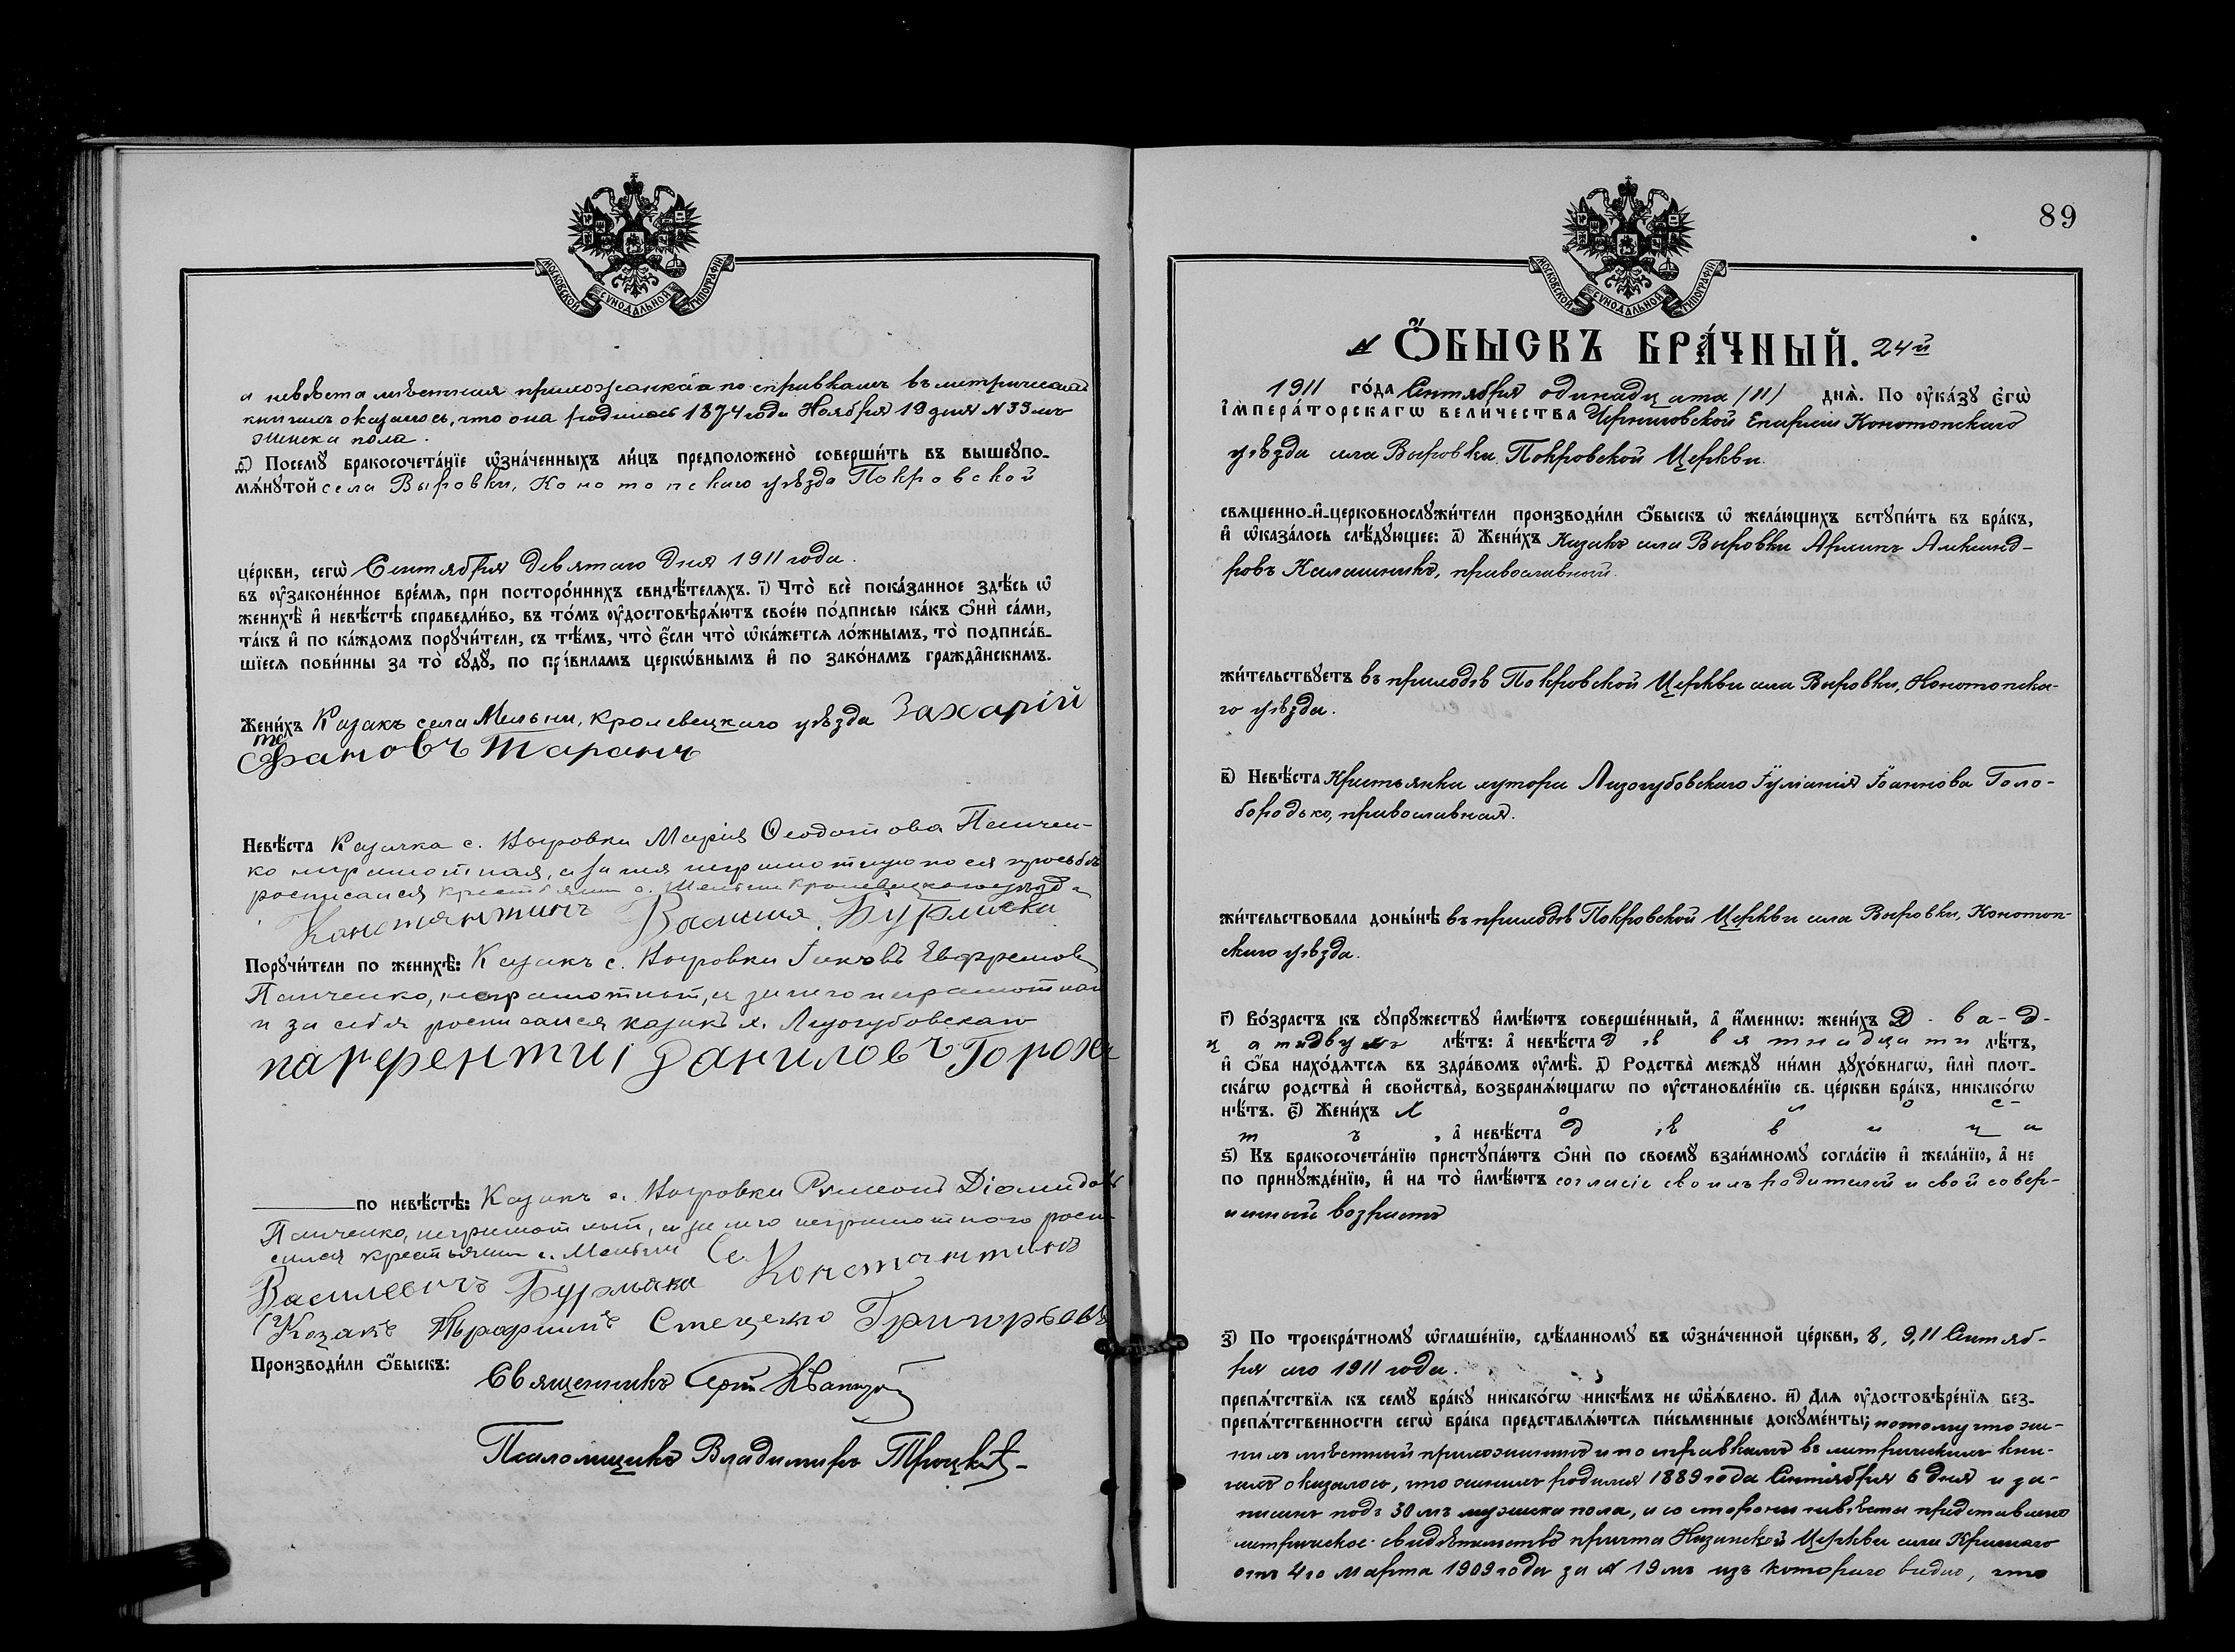 МОСКОВСКОЙ СУНОДАЛЬНОЙ ТИПОГРАФІИ
и невѣста мѣстная прихожанка и по справкамъ въ метрическихъ
книгахъ оказалось, что она родилась 1874 года Ноября 19 дня № 33 мъ
женска пола.
д҃) Посемꙋ̀ бракосочета́нїе ѡ҆зна́ченныхъ ли́цъ предположено̀ соверши́ть въ вышеꙋпо-
мѧ́нꙋтой села Выровки, Конотопскаго уѣзда Покровской
це́ркви, сегѡ̀ Сентября девятаго дня 1911 года.
въ ᲂу҆законе́нное вре́мѧ, при посторо́ннихъ свидѣ́телѧхъ. і҃) Что̀ всѐ пока́занное здѣ́сь ѡ҆
женихѣ̀ и҆ невѣ́стѣ справедли́во, въ то́мъ ᲂу҆достовѣрѧ́ютъ свое́ю по́дписью ка́къ ѻ҆нѝ са́ми,
та́къ и҆ по ка́ждомъ порꙋчи́тели, съ тѣ́мъ, что̀ є҆́сли что̀ ѡ҆ка́жетсѧ ло́жнымъ, то̀ подписа́в-
шїесѧ пови́нны за то̀ сꙋдꙋ̀, по пра́виламъ церко́внымъ и҆ по зако́намъ гражда́нскимъ.
Жени́хъ Казакъ села Мельни, Кролевецкаго уѣзда Захарій
Стефановъ Таранъ
Невѣ́ста Казачка с. Выровки Марія Ѳеодотова Панчен-
ко неграмотная, а за нея неграмотную по ея просьбѣ
росписался крестьянин с. Мельни Кролевецкого уѣзда
Константинъ Василія Бурмака
Порꙋчи́тели по женихѣ̀: Казакъ с. Выровки Іаковъ Евфремовъ
Панченко, неграмотный, а за него неграмотнаго
и за себя росписался казакъ х. Лизогубовскаго
Парфентиі Даниловъ Горох
по невѣ́стѣ: Казакъ с. Выровки Діомидовъ
Панченко, неграмотный, а за него неграмотного роспи-
сался крестьянин с. Мельни Константинъ
Василевичъ Бурмака
Козакъ Стеценко Григорьевъ
Производи́ли ѻ҆́быскъ:
Священникъ
Псаломщикъ Владимиръ Троцкій
89
МОСКОВСКОЙ СУНОДАЛЬНОЙ ТИПОГРАФІИ
№ Ѻ҆́БЫСКЪ БРА́ЧНЫЙ. 24й
1911 го́да Сентября одинадцата /11/ днѧ̀. По ᲂу҆ка́зꙋ Є҆гѡ̀
І҆мпера́торскагѡ вели́чества Черниговской Епархіи Конотопскаго
уѣзда села Выровки Покровской Церкви
свѧщенно-и҆-церковнослꙋжи́тели производи́ли ѻ҆́быскъ ѡ҆ жела́ющихъ встꙋпи́ть въ бра́къ,
и҆ ѡ҆каза́лось слѣ́дꙋющее: а҃) Жени́хъ Казакъ села Выровки Александ-
ровъ Калашникъ, православный.
жи́тельствꙋетъ въ приходѣ Покровской Церкви села Выровки, Конотопска-
го уѣзда.
в҃) Невѣ́ста Крестьянка хутора Лизогубовскаго Іуліанія Іоаннова Голо-
бородько, православная.
жи́тельствовала доны́нѣ въ приходѣ Покровской Церкви села Выровки, Конотоп-
скаго уѣзда.
г҃) Во́зрастъ къ сꙋпрꙋ́жествꙋ и҆мѣ́ютъ соверше́нный, а҆ и҆́меннѡ: жени́хъ Д-ва-д-
цатидвухъ лѣ́тъ: а҆ невѣ́ста девятнадцати лѣ́тъ,
и҆ ѻ҆́ба нахо́дѧтсѧ въ здра́вомъ ᲂу҆мѣ̀. д҃) Родства̀ междꙋ ни́ми дꙋхо́внагѡ, и҆лѝ плот-
ска́гѡ родства̀ и҆ свойства̀, возбранѧ́ющагѡ по ᲂу҆становле́нїю св. це́ркви бра́къ, никако́гѡ
нѣ́тъ. є҃) Жени́хъ холос-
тъ, а҆ невѣ́ста дѣвица
ѕ҃) Къ бракосочета́нїю пристꙋпа́ютъ ѻ҆нѝ по своемꙋ̀ взаи́мномꙋ согла́сїю и҆ жела́нїю, а҆ не
по принꙋжде́нїю, и҆ на то̀ и҆мѣ́ютъ согласіе своихъ родителей и свой совер-
шенный возрастъ
з҃) По троекра́тномꙋ ѡ҆глаше́нїю, сдѣ́ланномꙋ въ ѡ҆зна́ченной це́ркви, 8, 9, 11 Сентяб-
ря сего 1911 года.
препѧ́тствїѧ къ семꙋ̀ бра́кꙋ никако́гѡ никѣ́мъ не ѡ҆б̾ѧ́влено. и҃) Длѧ ᲂу҆достовѣре́нїѧ без-
препѧ́тственности сегѡ̀ бра́ка представлѧ́ютсѧ пи́сьменные докꙋме́нты; потому что же-
нихъ мѣстный прихожанинъ и по справкамъ въ метрическихъ кни-
гахъ оказалось, что женихъ родился 1889 года Сентября 6 дня и за-
писанъ подъ 30 мъ мужска пола, а со стороны невѣсты представлено
метрическое свидѣтельство причта Казанской Церкви села
отъ 4го Марта 1909 года за № 19 мъ изъ котораго видно, что